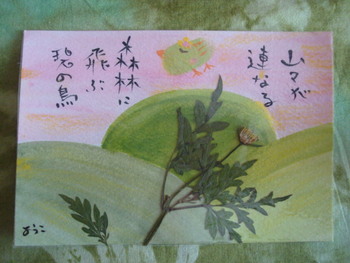 山々が
連なる
森林に
飛ぶ
碧の鳥
ようこ